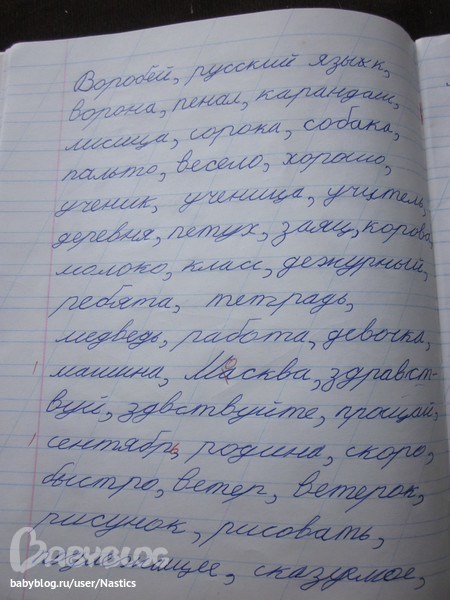 Воробей, русский языкк,
ворона, пенал, карандаш,
лисица, сорока, собака,
пальто, весело, хорошо,
ученик, ученица, учитель,
деревня, петух, заяц, корова,
молоко, класс, дежурный,
ребята, тетрадь,
медведь, работа, девочка,
машина, Москва, здравст-
вуй, здвствуйте, прощай,
сентябрь, родина, скоро,
быстро, ветер, ветерок,
рисунок, рисовать,
подлежащее, сказуемое,
BABYBLOG
babyblog.ru/user/Nastics